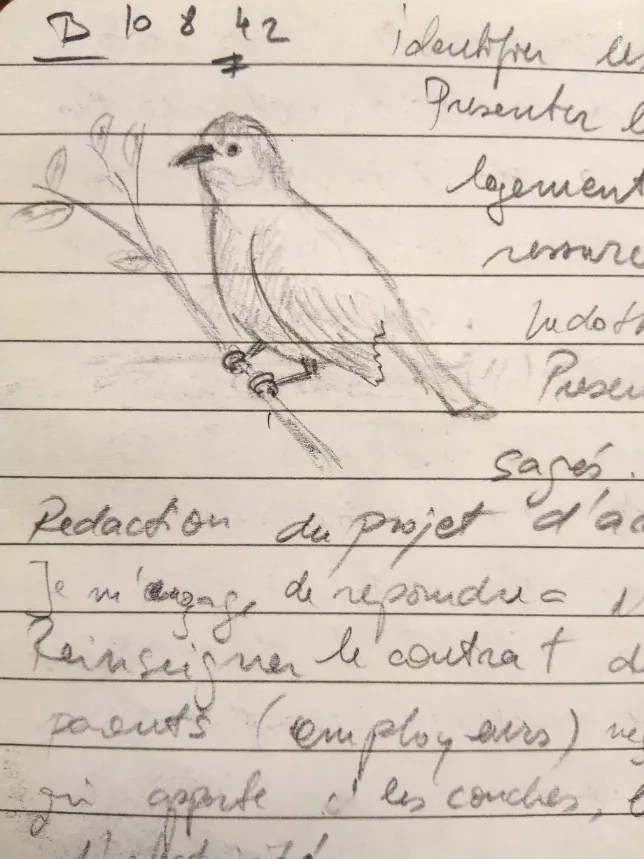 B 10 8 42
identifier les
Presenter l
logement
ressource
Presen
sagés.
Redaction du projet d'ac
Je m'engage de repondre a
Reinseigner le contrat d
parents (employeurs)
qui apporte les couches, l